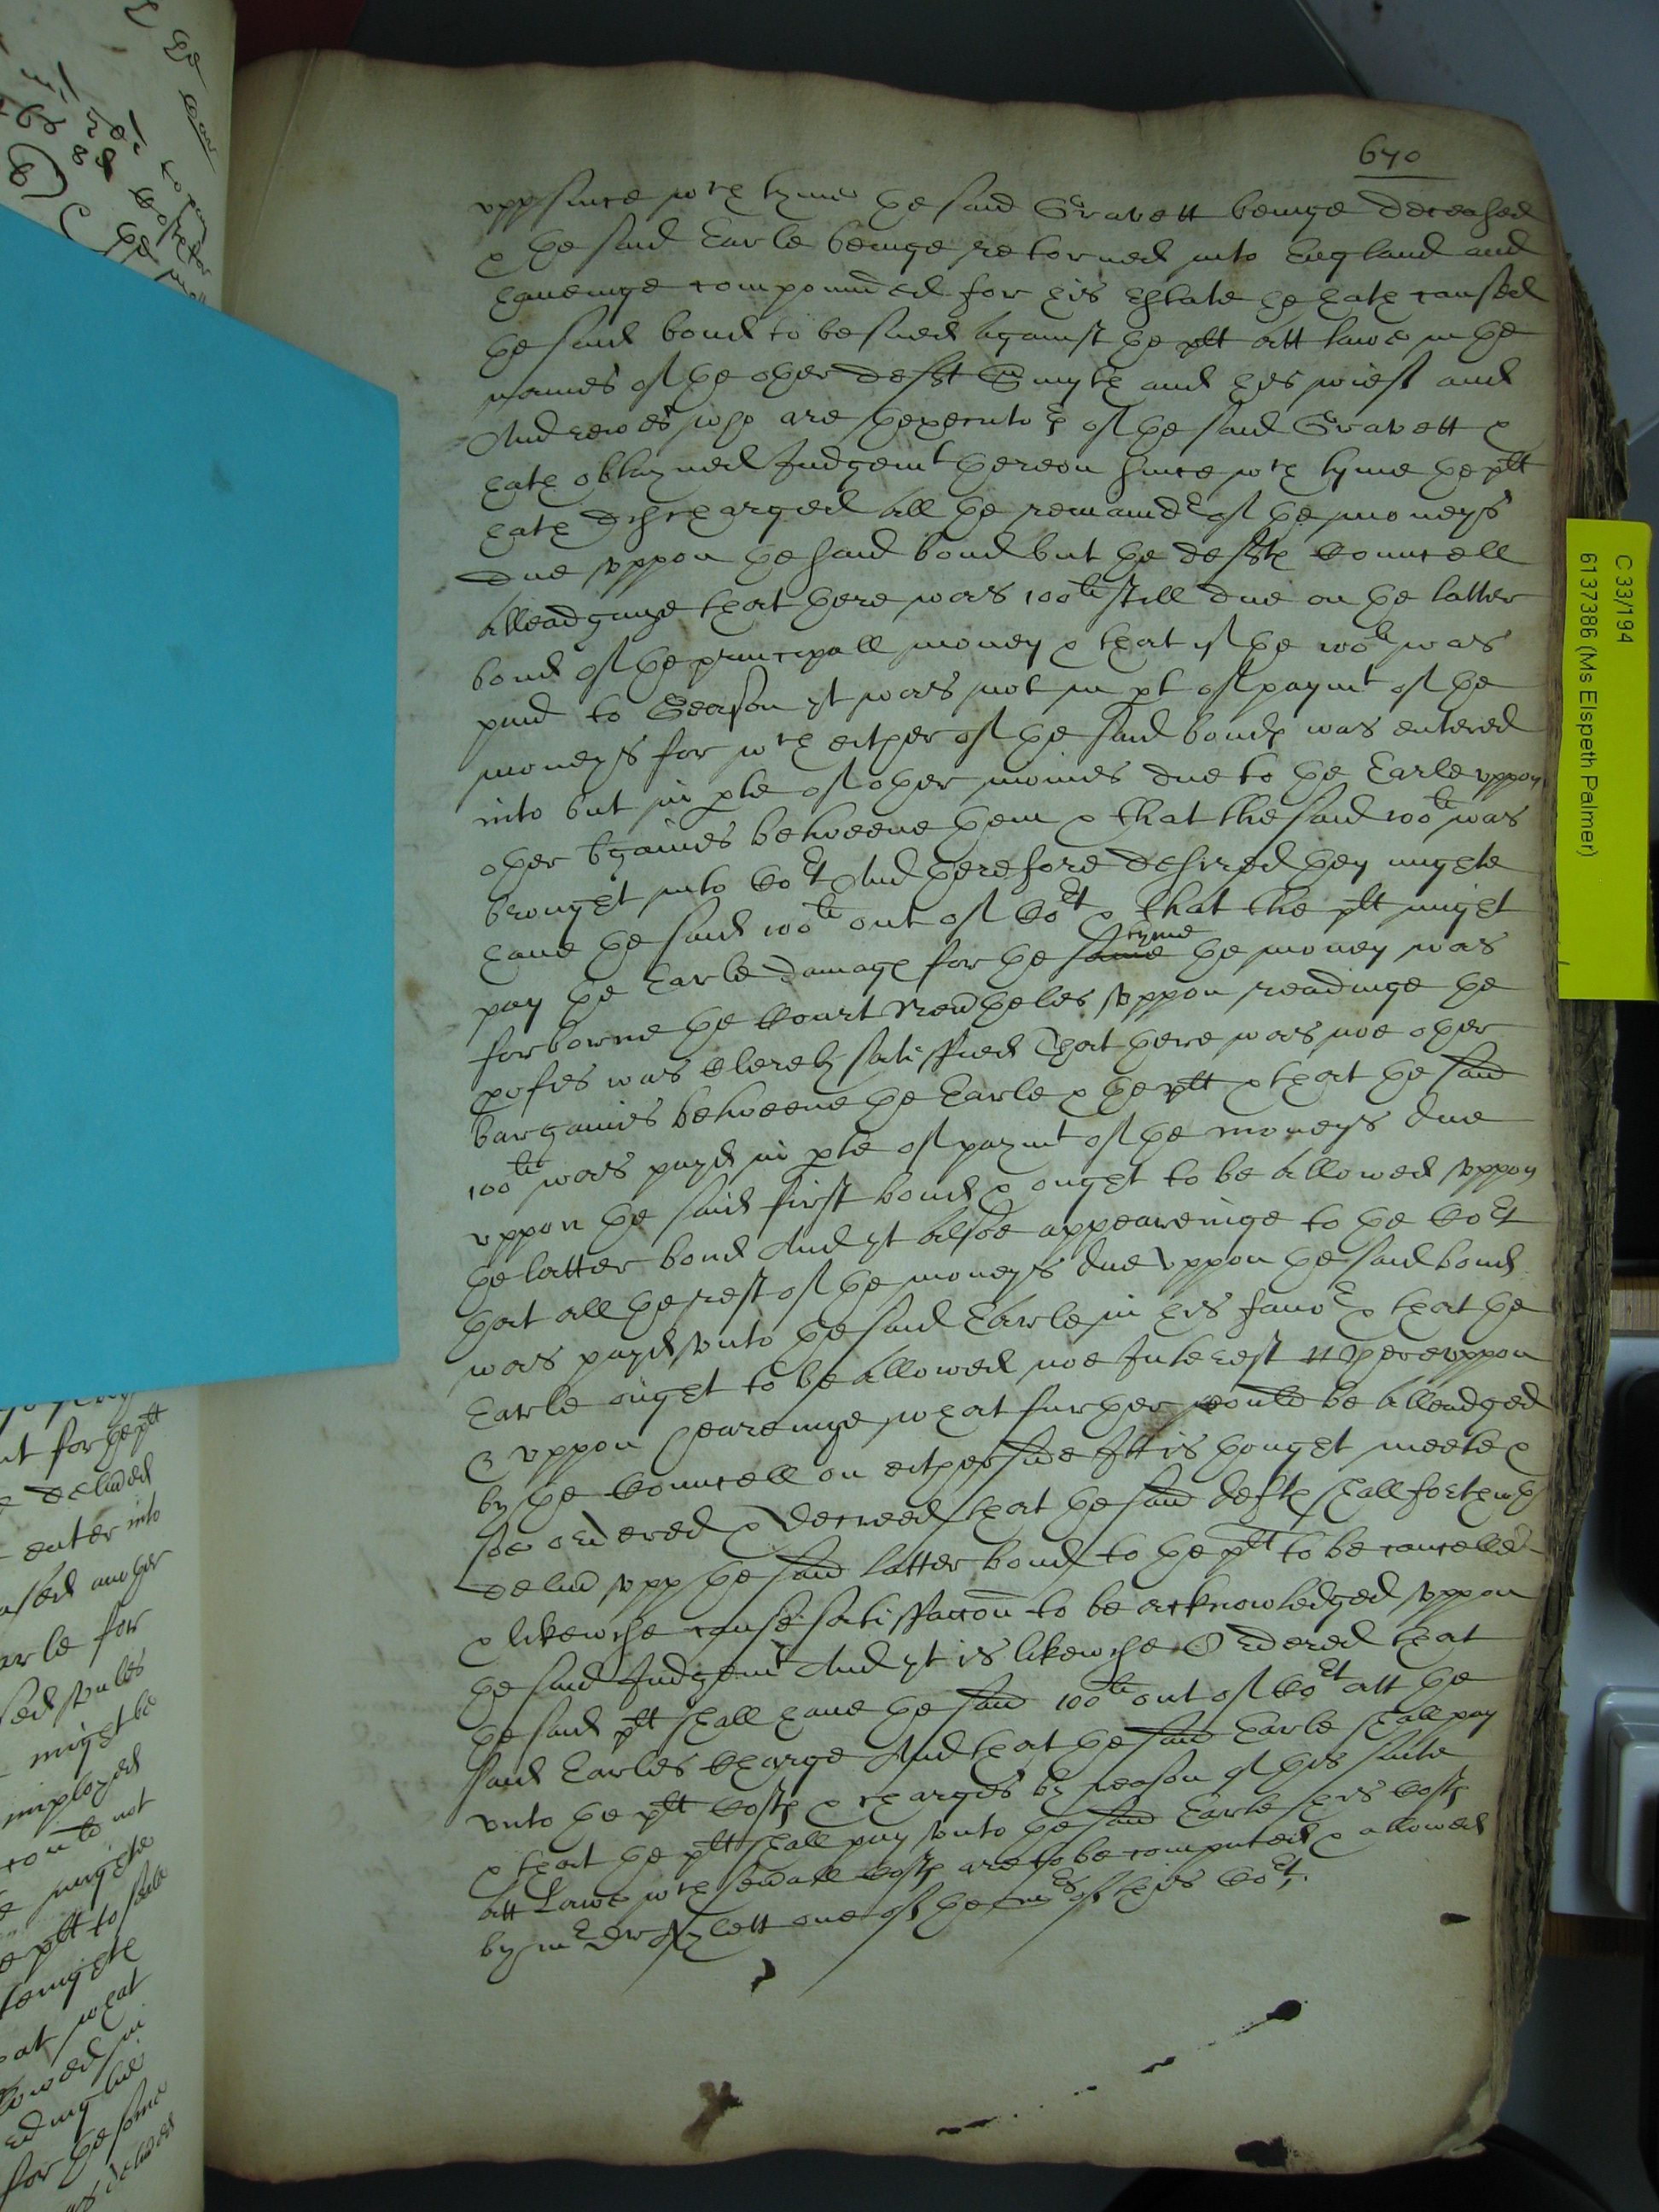 670
upp since wch tyme the said Gravett beinge deceased
& the said Earle beinge retorned into England and
haueinge compounded for his estate he hath caused
the said bond to be sued against the plt att lawe in the
names of the other deft Smyth and his wief and
Andrewes who are thexecutors of the said Gravett &
hath obtayned Judgemt thereon since wch tyme the plt
hath discharged all the remaindr of the moneys
due uppon the said bond but the defts Councell
alleadginge that there was 100li still due on the latter
bond of the principall money & that if the 100li was
paid to Gearson yt was not in pt of paymt of the
moneys for wch either of the said bonds was entered
into but in pte of other monies due to the Earle uppon
other bgaines betweene them & that the said 100li was
brought into Cort And therefore desired they mighte
haue the said 100li out of Cort & that the plt might
pay the Earle damags for the same tyme the money was
forborne the Court Neutheles uppon readinge the
profes was clerely satisfied That there was noe other
bargaines betweene the Earle & the plt & that the said
100li was payd in pte of paymt of the moneys due
uppon the said first bond & ought to be allowed uppon
the latter bond And yt alsoe appeareinge to the Cort
that all the rest of the moneys due uppon the said bond
was payd unto the said Earle in his favor & that the
Earle ought to be allowed noe Interest Thereuppon
& uppon heareinge what further could be alleadged
by the Councell on either side Itt is thought meete &
soe ordered & decreed that the said defts shall forthwth
deliu upp the said latter bond to the plt to be cancelled
& likewise cause satisfaccon to be acknowledged uppon
the said Judgemt And yt is likewise Ordered that
the said plt shall haue the said 100li out of Cort att the
said Earles charge And that the said Earle shall pay
unto the plt Costs & charges by reason of this suite
& that the plt shall pay unto the said Earle his Costs
att Lawe wch seuall Costs are to be computed & allowed
by mr one of the mrs of this Cort.
C 33/194
6137386 (Ms Elspeth Palmer)
nt for the plt
deliued
enter into
another
arle for
might be
imployed
not
mighte
plt to
what
for the some